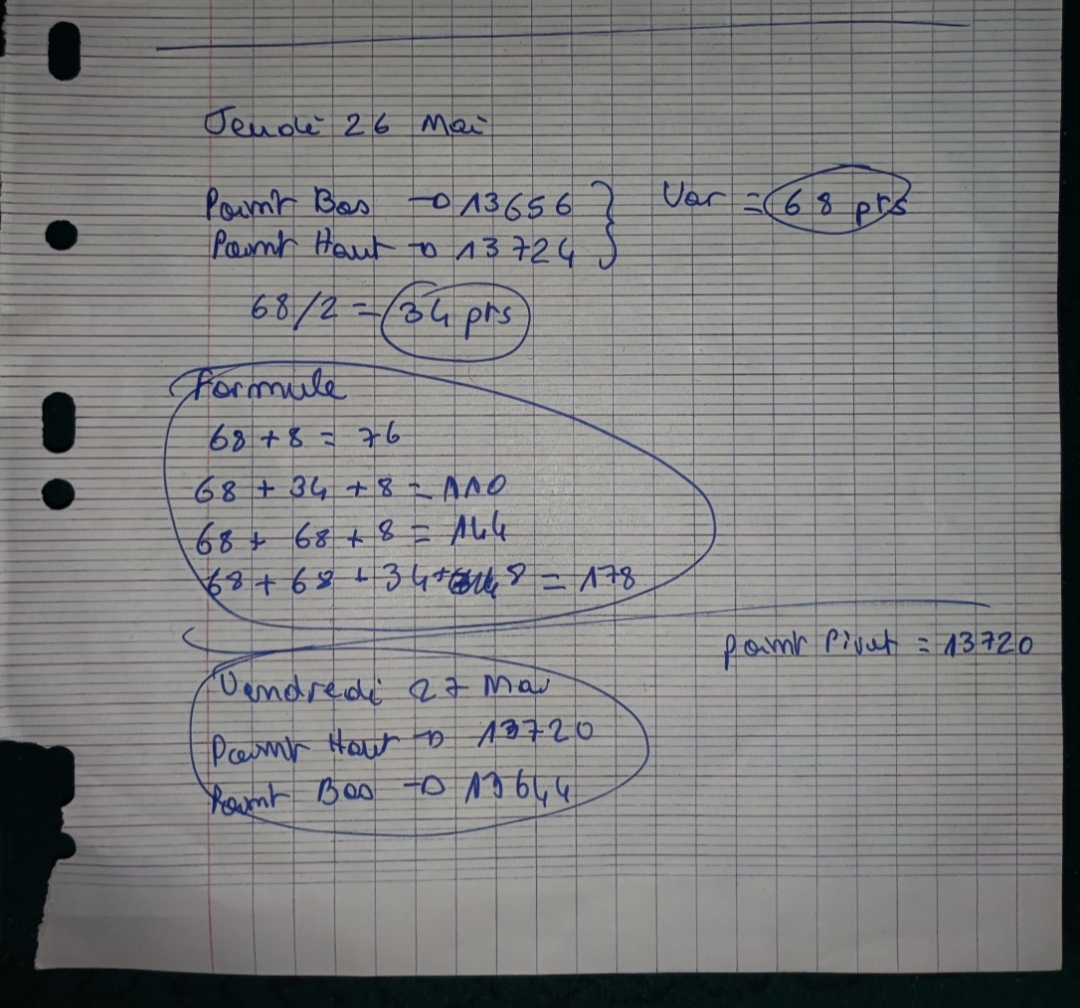 Jeudi 26 Mai
Point Bas → 13656
Var = 68 pts
Point Haut → 13724
68/2 = 34 pts
Formule
68 + 8 = 76
68 + 34 + 8 = 110
68 + 68 + 8 = 144
68 + 68 + 34 + 8 = 178
Point Pivot = 13720
Vendredi 27 Mai
Point Haut → 13720
Point Bas → 13644